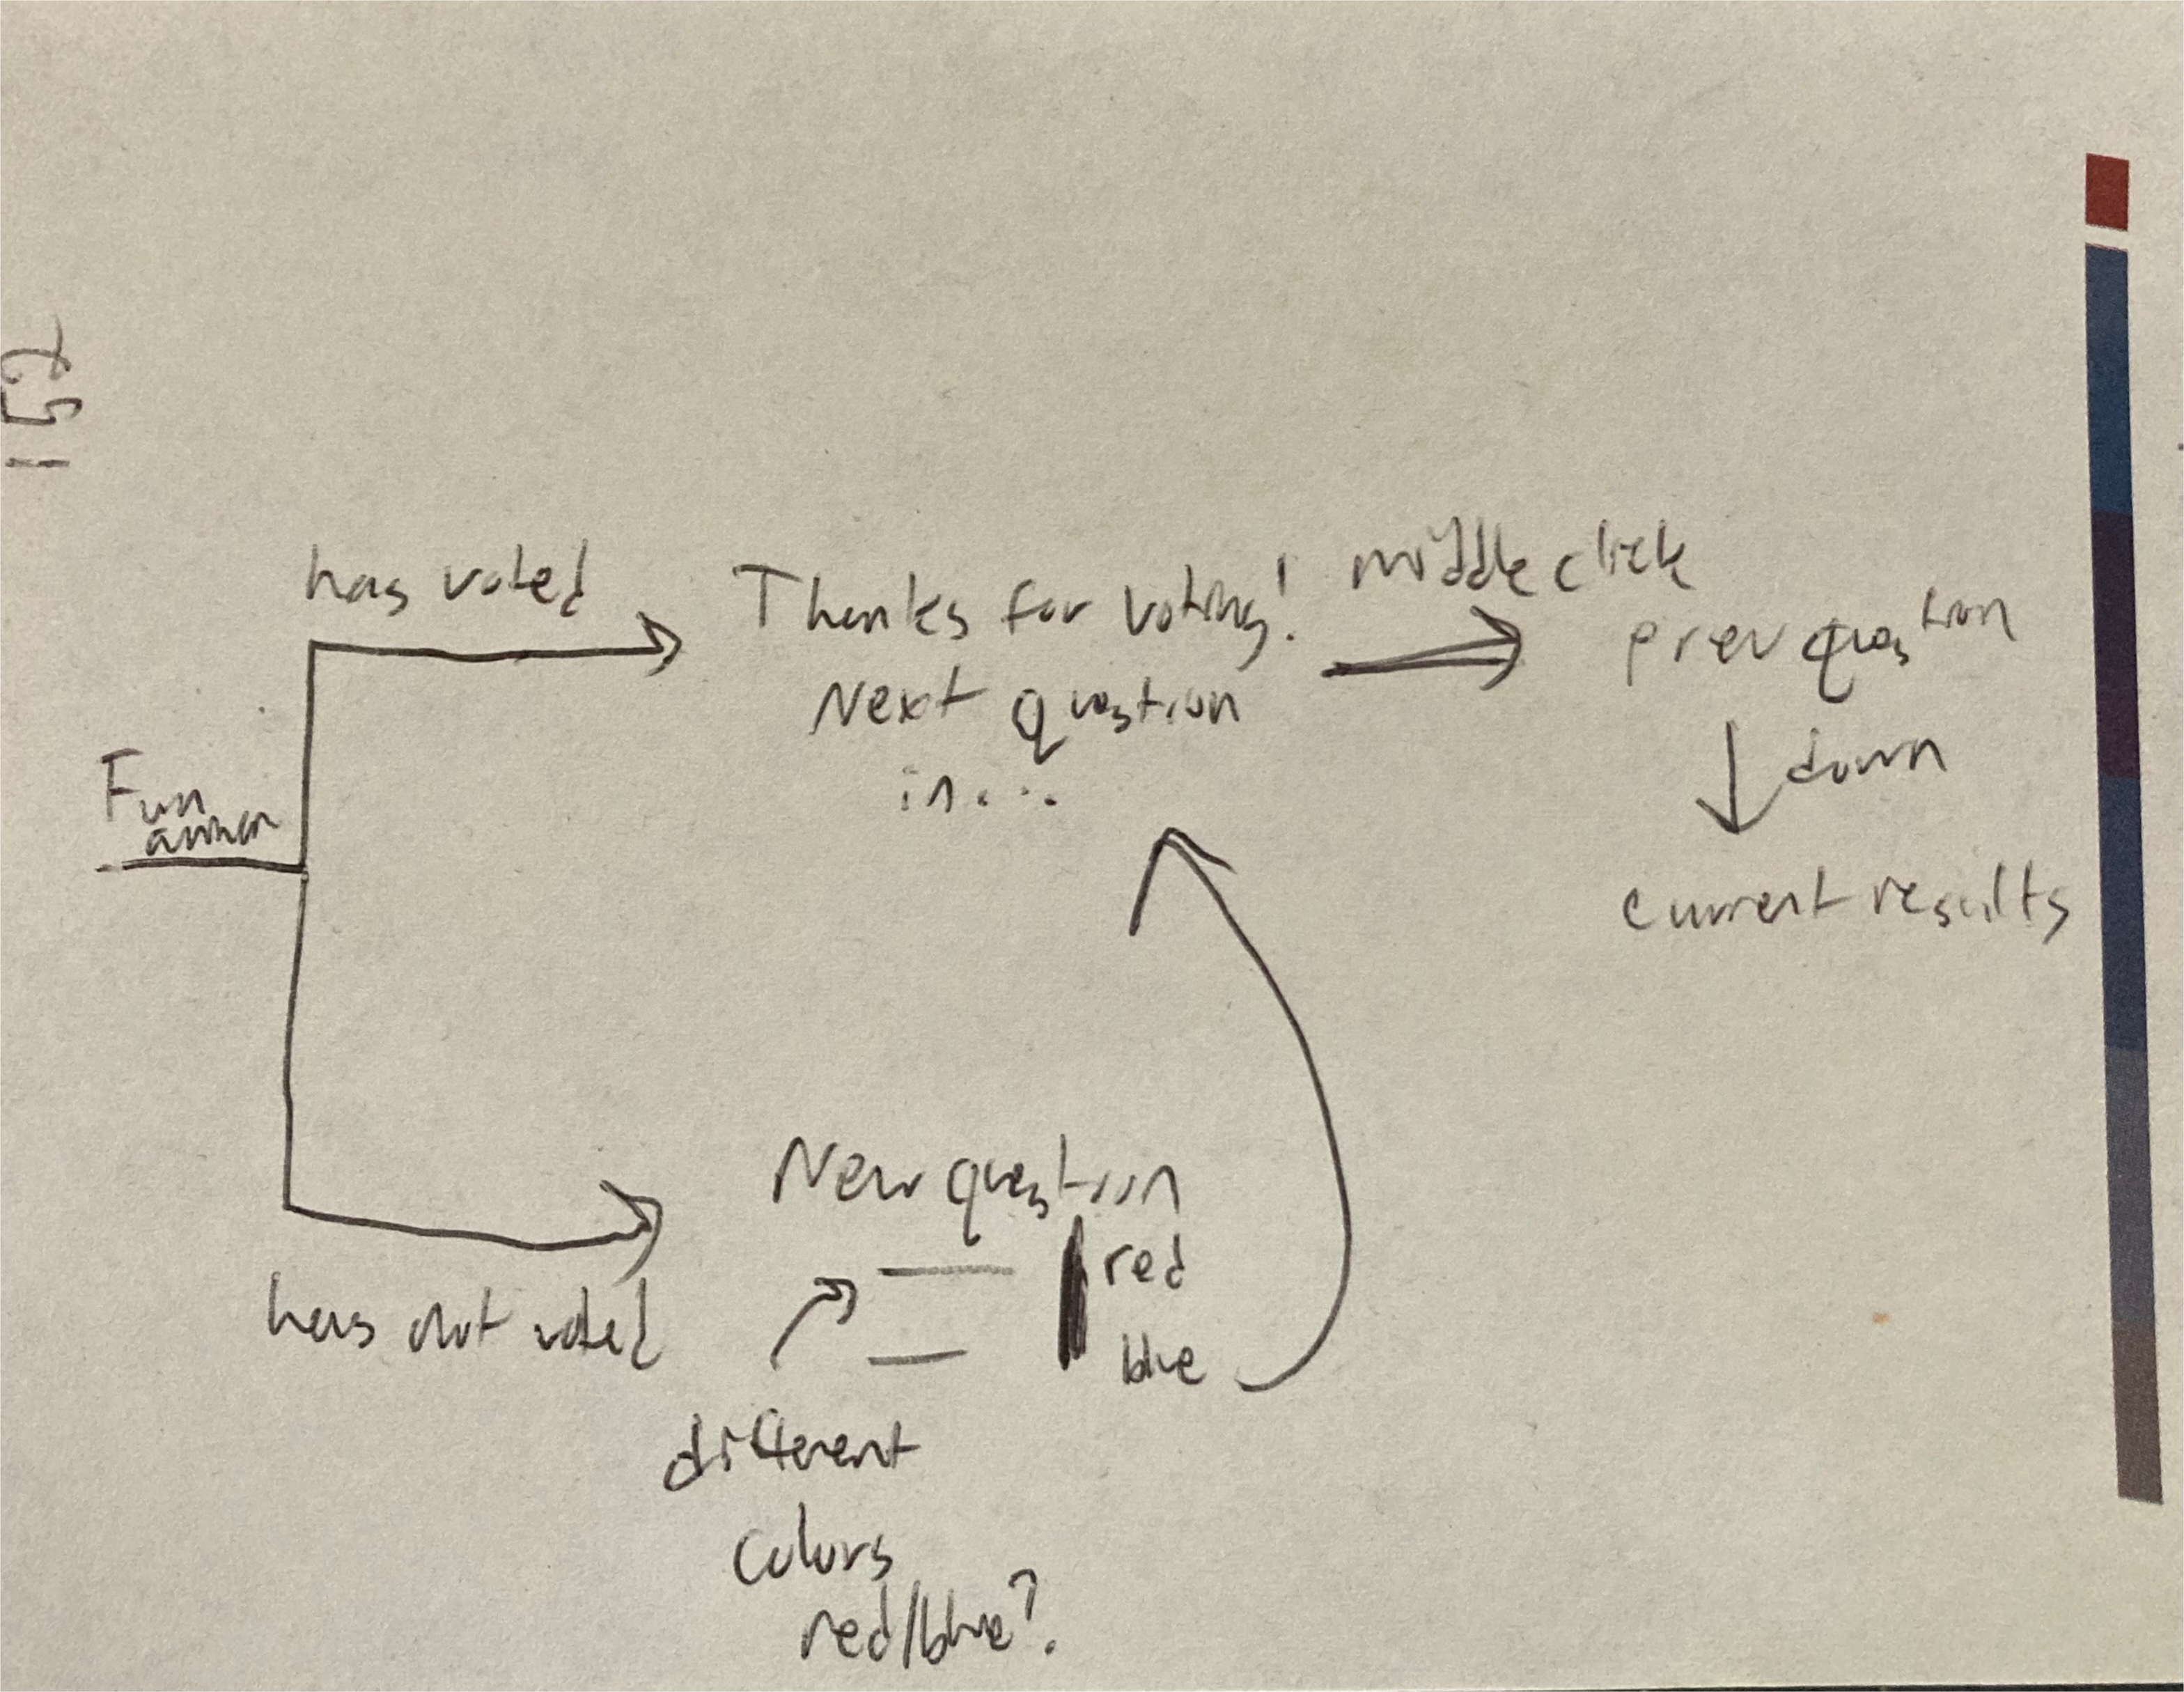 has voted
Thanks for voting!
Next question
in...
middle click
prev question
down
current results
Fun
has not voted
New question
red
blue
different
colors
red/blue?